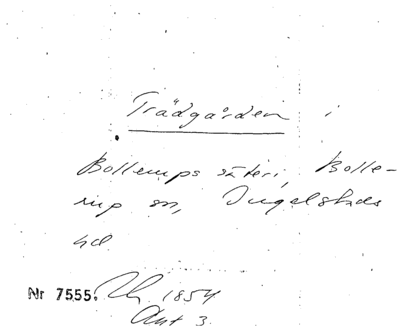 Trädgården i
Bollerups säteri, Bolle-
rup sn, Ingelstads
hd
Nr 7555. 1854
Akt 3.